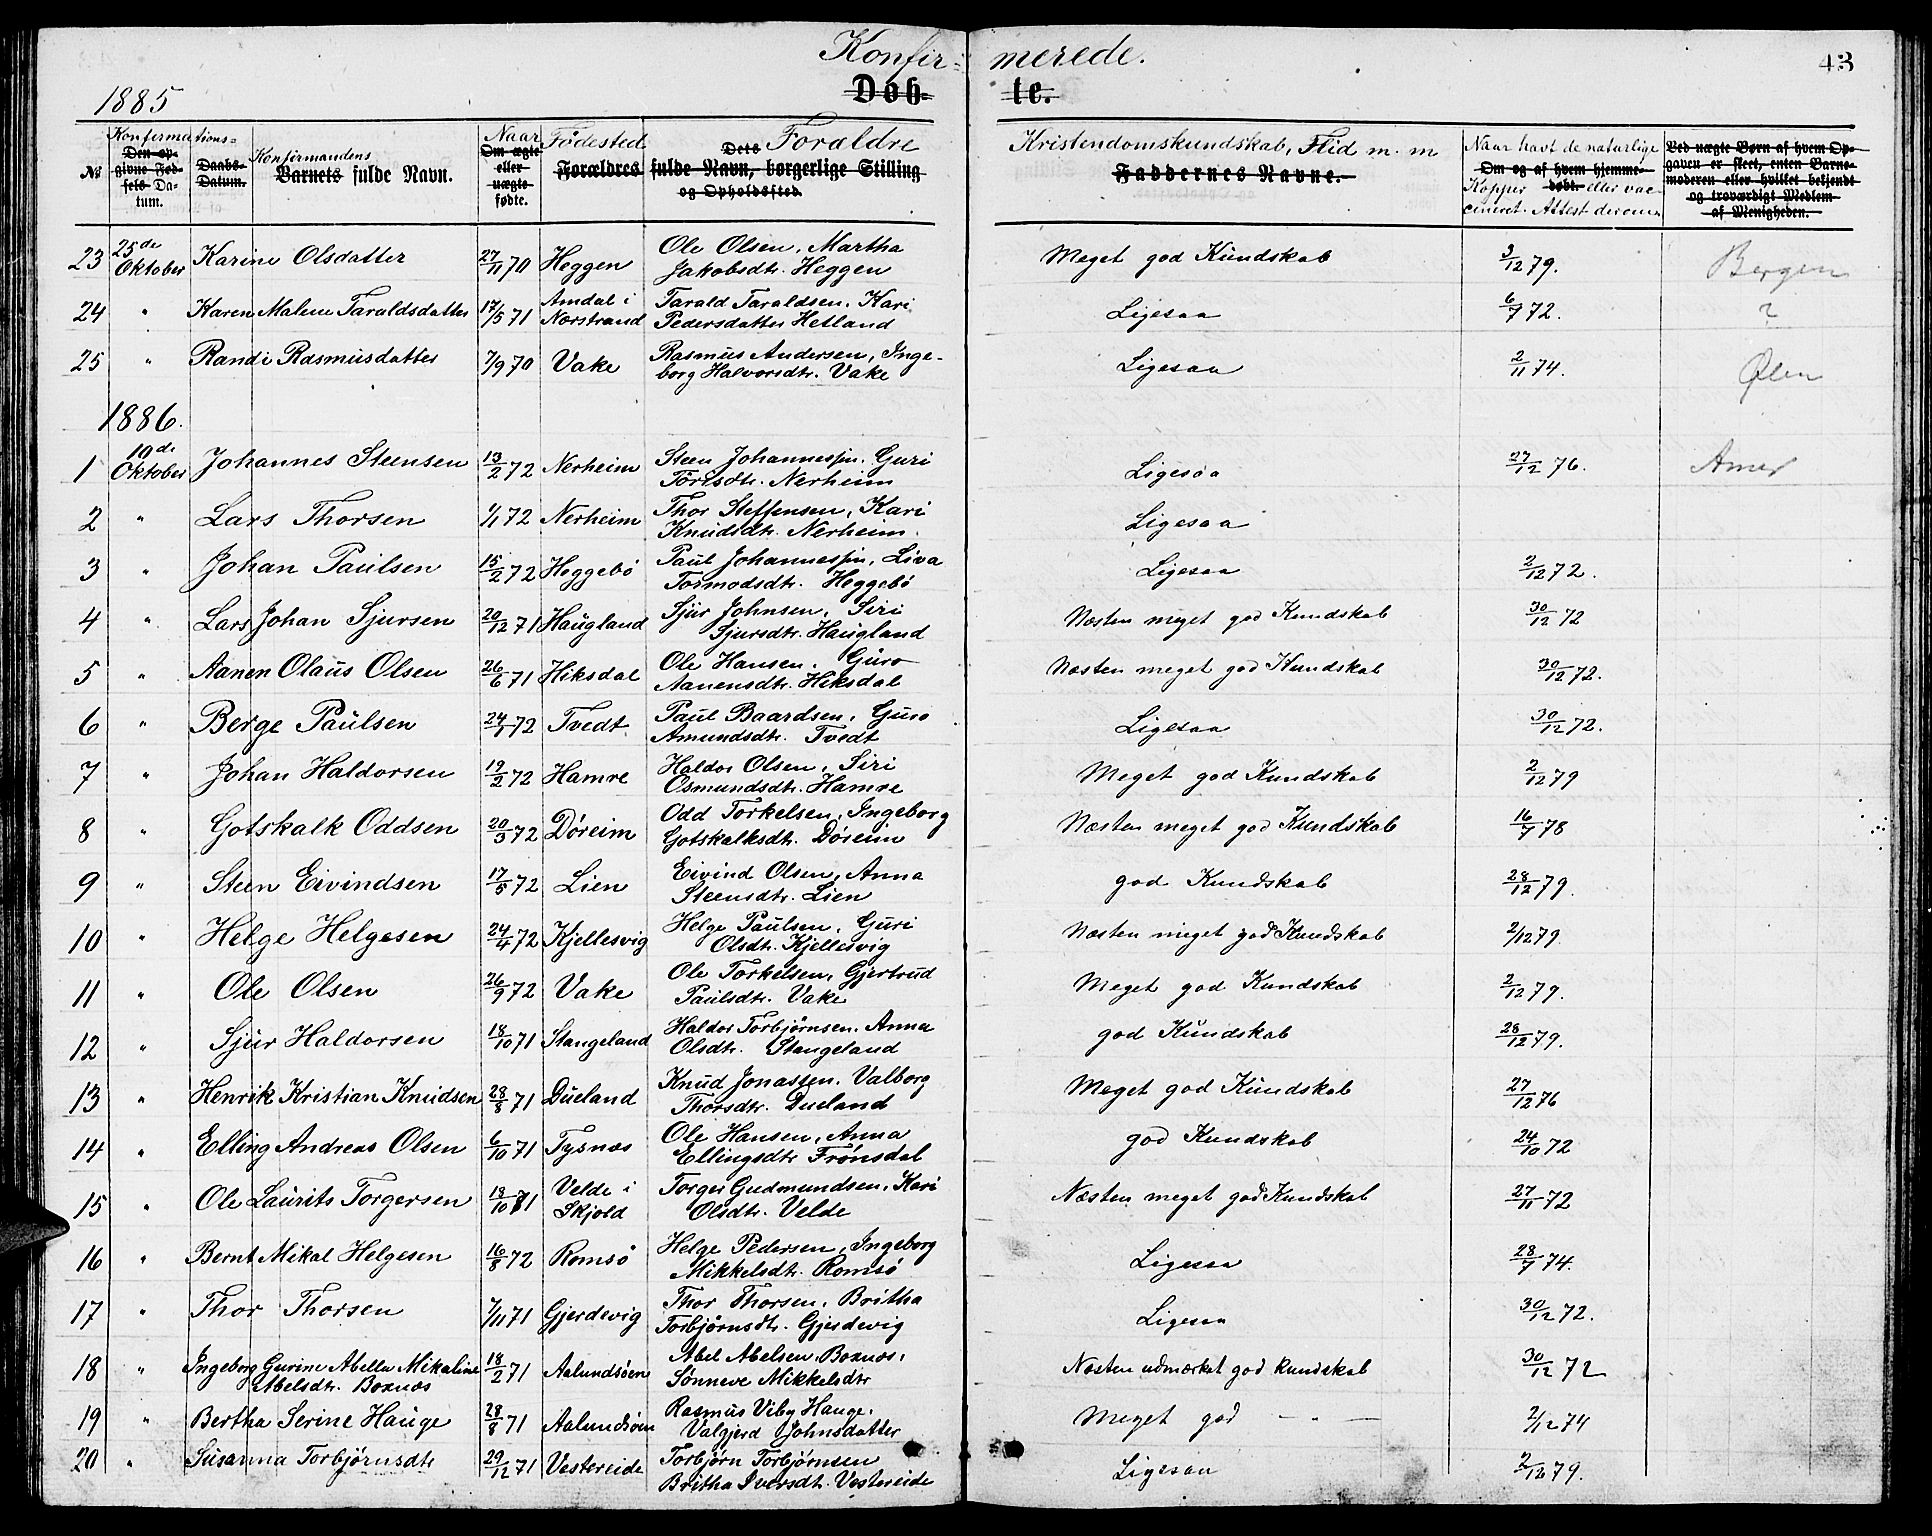 Konfirmerede. 43
1885 Døbte.
Konfirmations=
№ Den opgivne Fødsels Datum. Daabs-Datum. Konfirmandens Barnets fulde Navn. Naar Om ægte eller uægte fødte. Fødested Forældre Dets Forældres fulde Navn, borgerlige Stilling og Opholdssted. Kristendomskundskab, Flid m. m Faddernes Navne. Naar havt de naturlige Kopper eller vaccineret. Attest derom. Om og af hvem hjemmedøbt. Ved uægte Børn af hvem Opgaven er skeet, enten Barnemoderen eller hvilket bekjendt og troværdigt Medlem af Menigheden.
23 25de Oktober Karine Olsdatter 27/11 70 Heggen Ole Olsen, Martha Jakobsdtr. Heggen Meget god Kundskab 3/12 79. Bergen
24 " Karen Malene Taraldsdatter 17/5 71 Amdal i Nørstrand Tarald Taraldsen. Kari Pedersdatter Hetland Ligesaa 6/7 72. ?
25 " Randi Rasmusdatter 7/9 70 Vake Rasmus Andersen, Ingeborg Halvorsdtr. Vake Ligesaa 2/11 74. Ølen
1886.
1 10de Oktober Johannes Steensen 13/2 72 Nerheim Steen Johannessn. Guri Torisdtr. Nerheim Ligesaa 27/12 76. Amer
2 " Lars Thorsen 1/1 72 Nerheim Thor Steffensen, Kari Knudsdtr. Nerheim. Ligesaa
3 " Johan Paulsen 15/2 72 Heggebø Paul Johannessn, Liva Tormodsdtr. Heggebø Ligesaa 2/12 72.
4 " Lars Johan Sjursen 20/12 71 Haugland Sjur Johnsen, Siri Sjursdtr. Haugland Næsten meget god Kundskab 30/12 72
5 " Aanen Olaus Olsen 26/6 71 Hiksdal Ole Hansen. Guro Aanensdtr. Hiksdal Næsten meget god Kundskab 30/12 72.
6 " Berge Paulsen 24/1 72 Tvedt Paul Baardsen, Guro Amundsdtr. Tvedt Ligesaa 30/12 72.
7 " Johan Haldorsen 19/2 72 Hamre Haldor Olsen, Siri Osmundsdtr. Hamre Meget god Kundskab 2/12 79
8 " Gotskalk Oddsen 20/3 72 Døreim Odd Torkelsen, Ingeborg Gotskalksdtr. Døreim Næsten meget god Kundskab 16/7 78
9 " Steen Eivindsen 17/5 72 Lien Eivind Olsen, Anna Steensdtr. Lien god Kundskab 28/12 79.
10 " Helge Helgesen 24/4 72 Kjellesvig Helge Paulsen, Guri Olsdtr. Kjellesvig Næsten meget god Kundskab 2/12 79.
11 " Ole Olsen 26/9 72 Vake Ole Torkelsen, Gjertrud Paulsdtr. Vake Meget god Kundskab 2/12 79.
12 " Sjur Haldorsen 18/10 71 Stangeland Haldor Torbjørnsen. Anna Olsdtr. Stangeland god Kundskab 28/12 79.
13 " Henrik Kristian Knudsen 28/8 71 Dueland Knud Jonassen. Valborg Thorsdtr. Dueland Meget god Kundskab 27/12 76
14 " Elling Andreas Olsen 6/10 71 Tysnæs Ole Hansen, Anna Ellingsdtr Frønsdal god Kundskab 24/10 72
15 " Ole Laurits Torgersen 18/10 71 Velde i Skjold Torger Gudmundsen, Kari Olsdtr. Velde Næsten meget god Kundskab 27/11 72
16 " Bernt Mikal Helgesen 16/8 72 Romsø Helge Pedersen, Ingeborg Mikkelsdtr. Romsø Ligesaa 28/7 74.
17 " Thor Thorsen 7/11 71 Gjerdevig Thor Thorsen, Britha Torbjørnsdtr. Gjerdevig Ligesaa 30/12 72.
18 " Ingeborg Gurine Abella Mikaline Abelsdtr. Boxnæs 18/2 71 Aalundsøen Abel Abelsen. Boxnæs, Sønneve Mikkelsdtr Næsten udmærket god kundskab 30/12 72
19 " Bertha Serine Hauge 28/8 71 Aalundsøen Rasmus Viby Hauge, Valgjerd Johnsdatter Meget god — " — 2/12 74
20 " Susanna Torbjørnsdtr 29/12 71 Vestereide Torbjørn Torbjørnsen Britha Iversdtr. Vestereide Ligesaa 2/12 79.